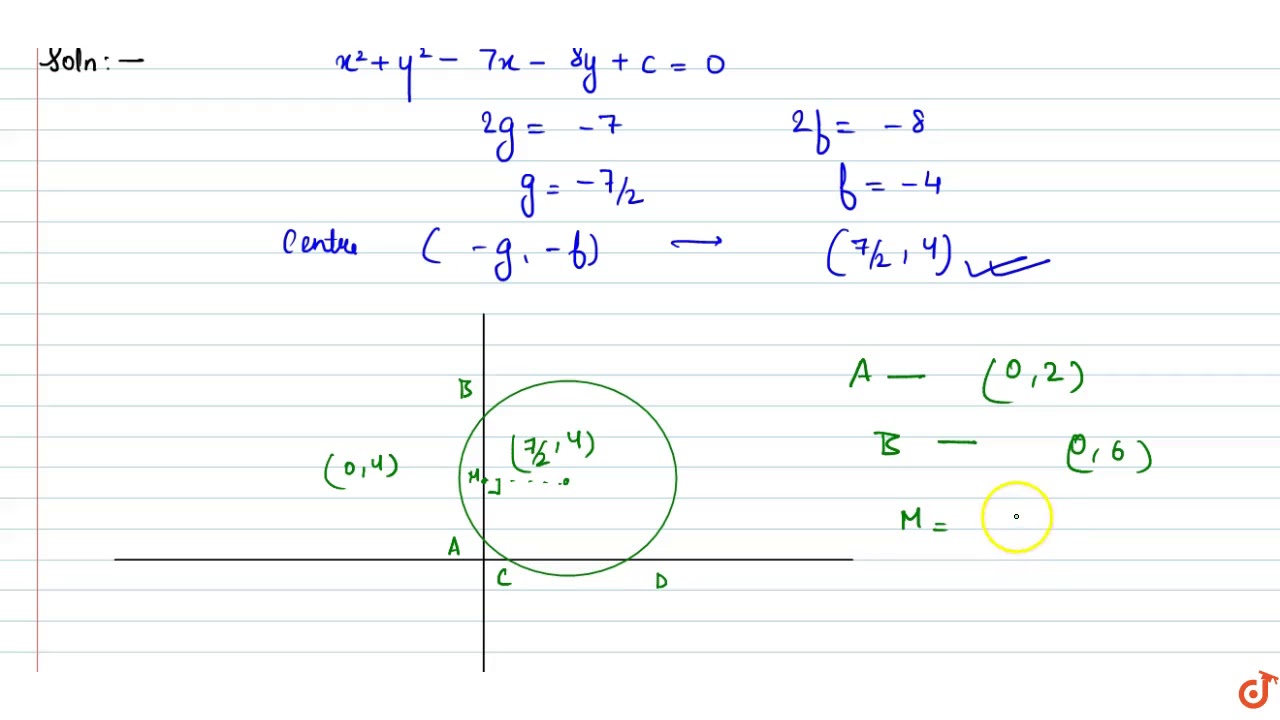 Soln: —
x² + y² - 7x - 8y + c = 0
2g = -7 2f = -8
g = -7/2 f = -4
Centre (-g, -f) ⟷ (7/2, 4)
A — (0, 2)
B
B — (0, 6)
(7/2, 4)
(0, 4)
M
M =
A
C
D